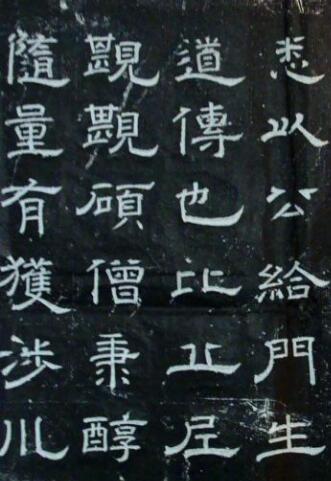 悉以公給門生
道傳也比丘尼
顯顯碩僧秉醇
隨量有獲涉川